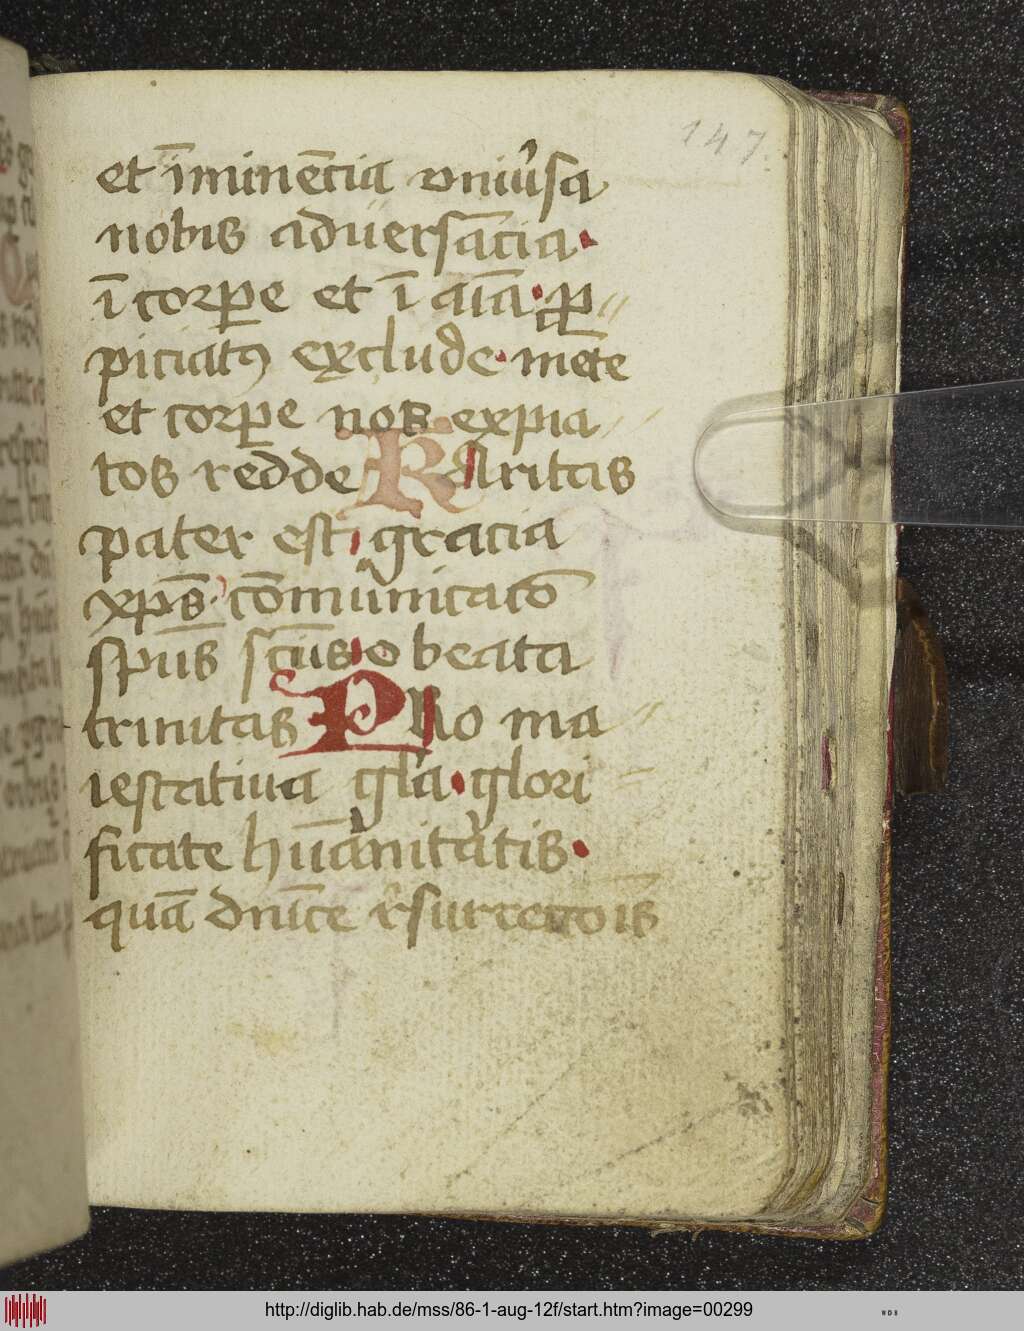 147
et ī minēcia vniu͛sa
nobis aduersācia
ī corꝑe et ī aīa ꝓp
piciatꝰ exclude mēte
et corꝑe nos expia
tos redde Karitas
pater est gracia
xp̄s cōmunicaco͞
spūs sc̄us o beata
trinitas Pro ma
iestatiua gl̄a glori
ficate hūanitatis
quā dnīce r͛surrecco͞is
http://diglib.hab.de/mss/86-1-aug-12f/start.htm?image=00299